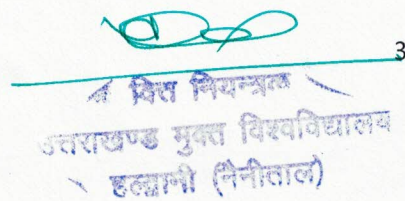 3
वित्त नियन्त्रक
उत्तराखण्ड मुक्त विश्वविद्यालय
हल्द्वानी (नैनीताल)